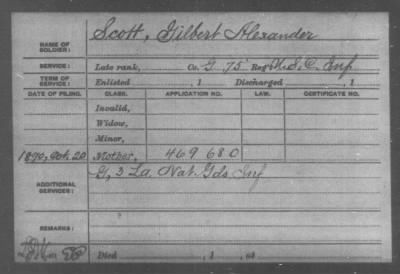 Scott, Gilbert Alexander
NAME OF SOLDIER:
SERVICE: Late rank, Co. G 75 Reg't U.S.C. Inf
TERM OF SERVICE: Enlisted , 1 Discharged , 1
DATE OF FILING. CLASS. APPLICATION NO. LAW. CERTIFICATE NO.
Invalid,
Widow,
Minor,
1890, Oct. 20 Mother, 469 680
ADDITIONAL SERVICES: G, 3 La. Nat. Gds Inf
REMARKS:
Died , 1 , at